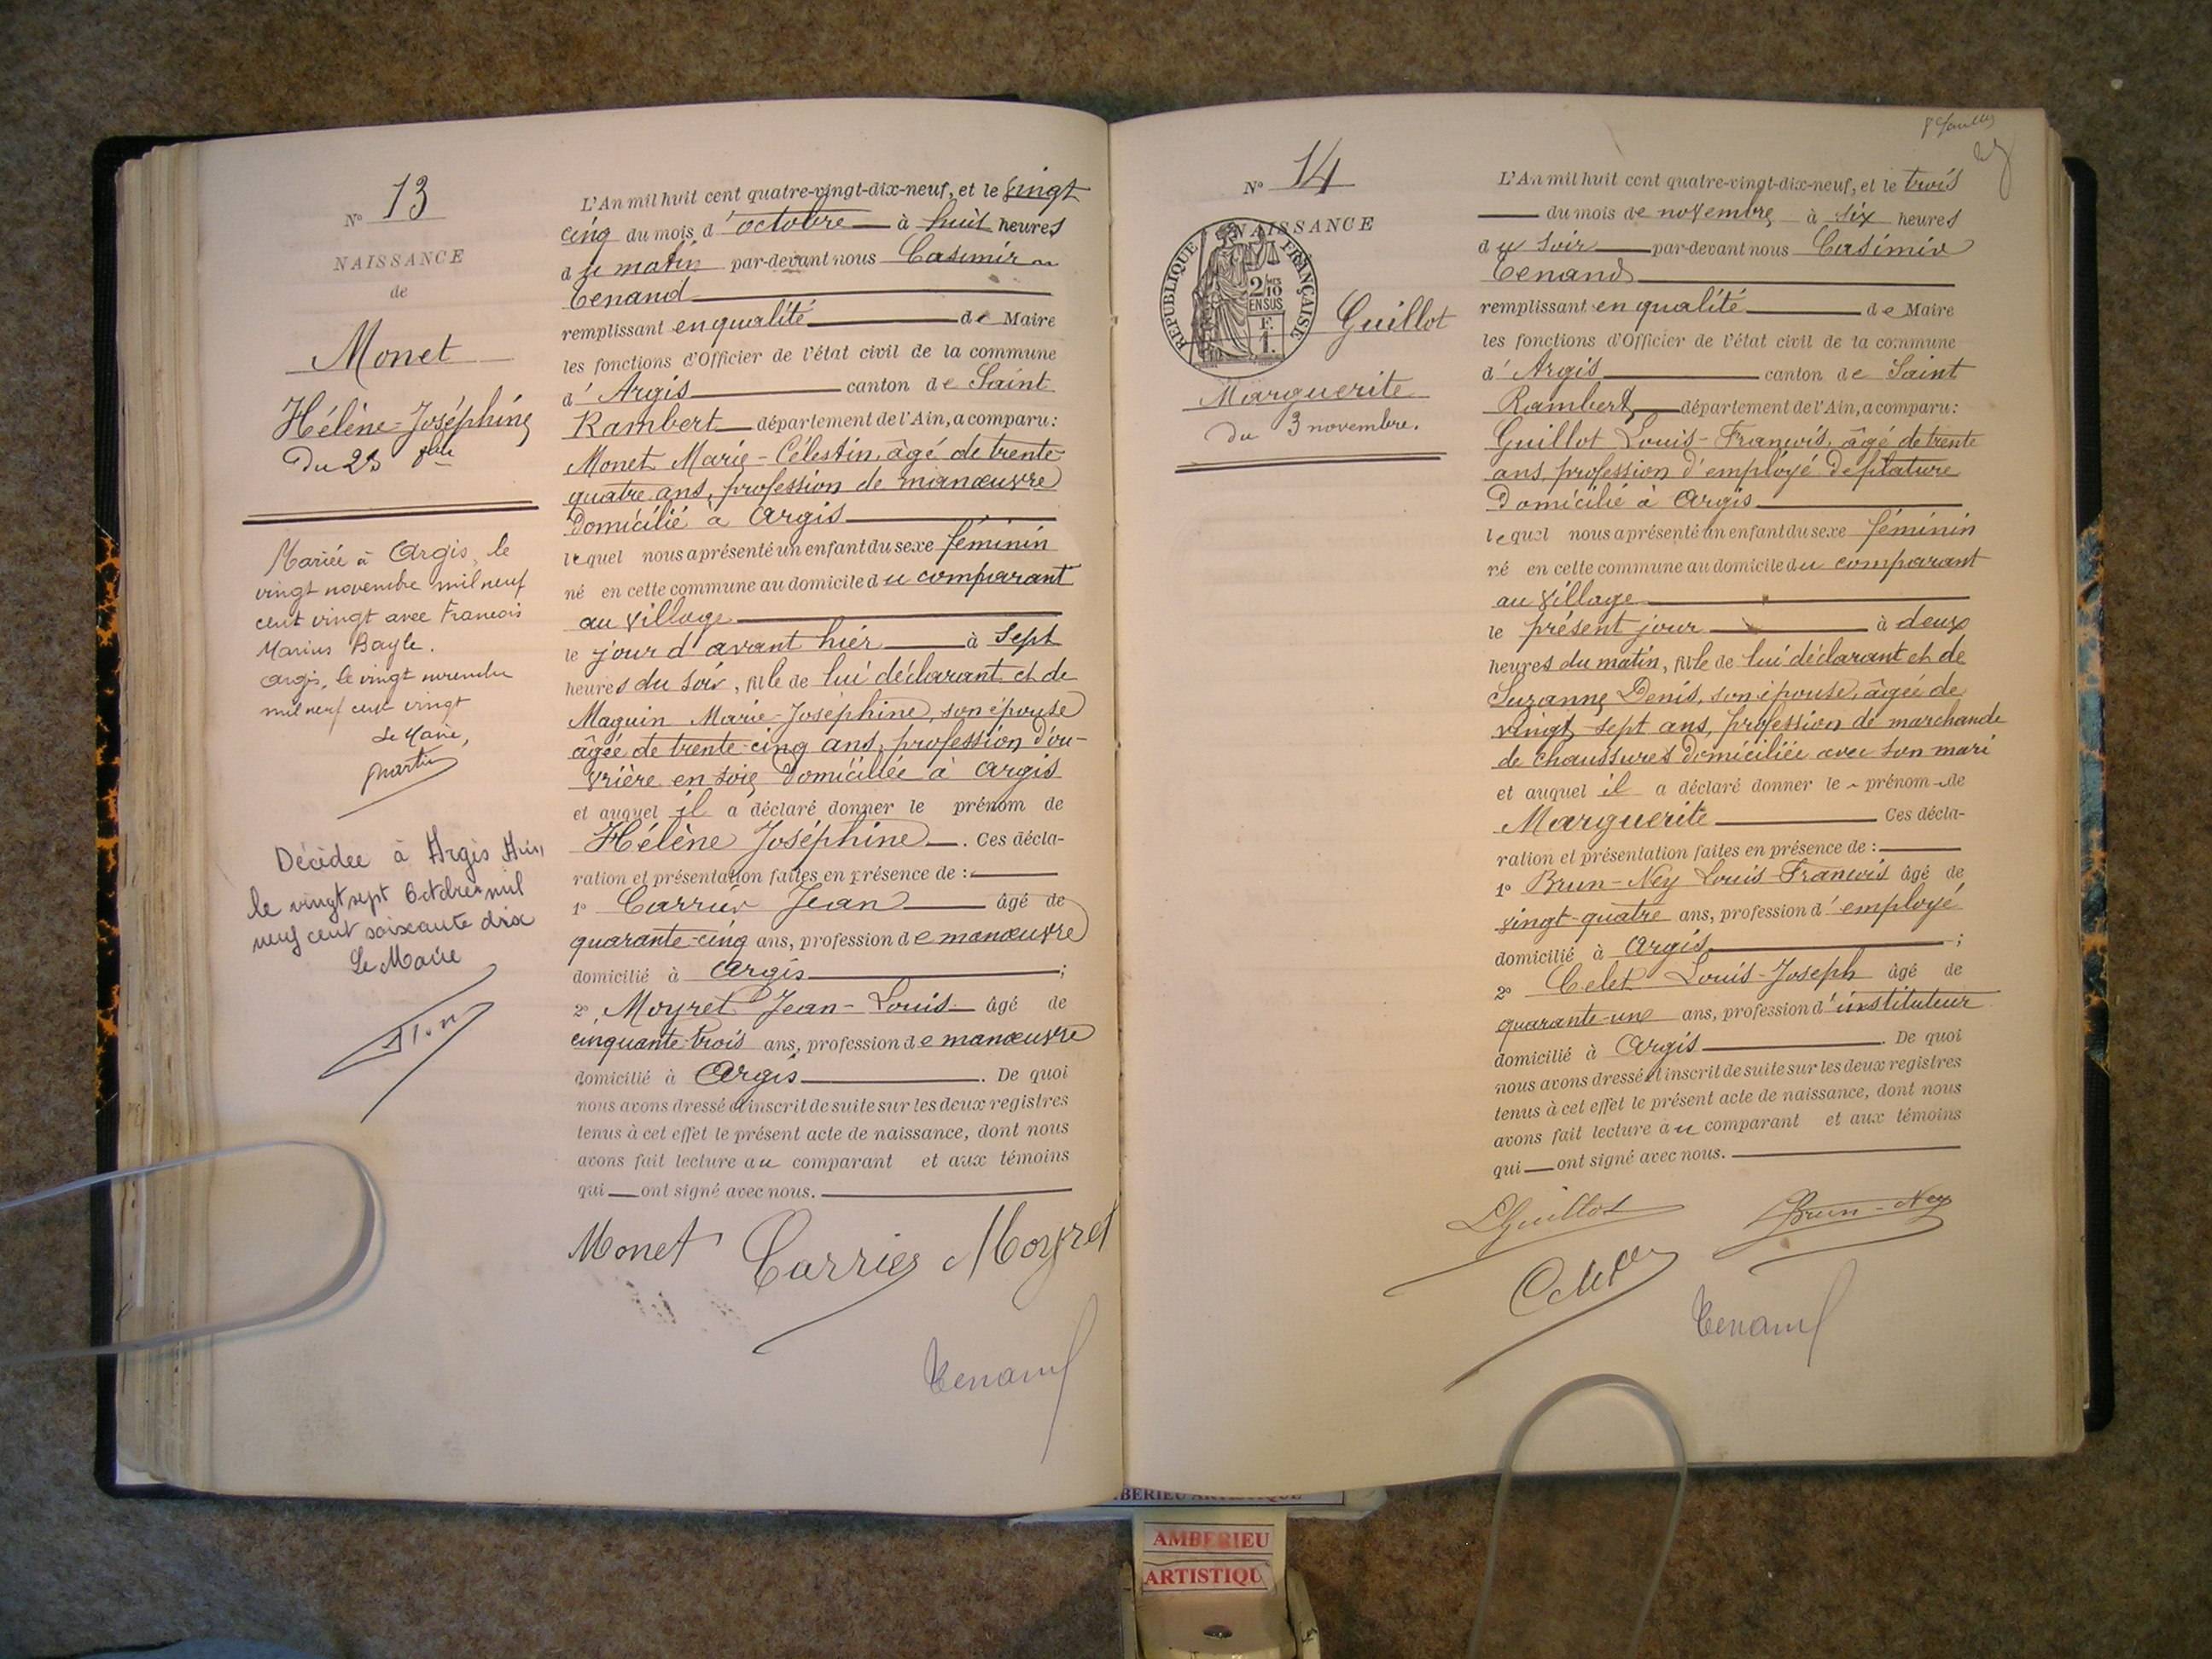 N° 13
NAISSANCE
de
Monet
Hélène-Joséphine
Du 23 8bre
Mariée à Argis, le
vingt novembre mil neuf
cent vingt avec Francois
Marius Bayle.
Argis, le vingt novembre
mil neuf cent vingt
Le Maire,
Martin
Décédée à Argis Ain,
le vingt sept Octobre mil
neuf cent soixante dix
Le Maire
L'An mil huit cent quatre-vingt-dix-neuf, et le vingt
cinq du mois d'octobre à huit heures
du matin par-devant nous Casimir
Tenand
remplissant en qualité de Maire
les fonctions d'Officier de l'état civil de la commune
d'Argis canton de Saint
Rambert département de l'Ain, a comparu:
Monet Marie-Célestin, âgé de trente
quatre ans, profession de manœuvre
Domicilié à Argis
lequel nous a présenté un enfant du sexe féminin
né en cette commune au domicile du comparant
au village
le jour d'avant hier à sept
heures du soir, fille de lui déclarant et de
Maguin Marie-Joséphine, son épouse
âgée de trente-cinq ans, profession d'ou-
vrière en soie, Domiciliée à Argis
et auquel il a déclaré donner le prénom de
Hélène Joséphine. Ces décla-
ration et présentation faites en présence de :
1° Carrier Jean âgé de
quarante-cinq ans, profession de manœuvre
domicilié à Argis ;
2° Moyret Jean-Louis âgé de
cinquante-trois ans, profession de manœuvre
domicilié à Argis. De quoi
nous avons dressé et inscrit de suite sur les deux registres
tenus à cet effet le présent acte de naissance, dont nous
avons fait lecture au comparant et aux témoins
qui ont signé avec nous.
Monet Carrier Moyret
Tenand
N° 14
NAISSANCE
REPUBLIQUE FRANÇAISE
2/10
EN SUS
F.
1.
Guillot
Marguerite
du 3 novembre.
L'An mil huit cent quatre-vingt-dix-neuf, et le trois
du mois de novembre à six heures
du soir par-devant nous Casimir
Tenand
remplissant en qualité de Maire
les fonctions d'Officier de l'état civil de la commune
d'Argis canton de Saint
Rambert département de l'Ain, a comparu:
Guillot Louis-François, âgé de trente
ans, profession d'employé de filature
Domicilié à Argis
lequel nous a présenté un enfant du sexe féminin
né en cette commune au domicile du comparant
au village
le présent jour à deux
heures du matin, fille de lui déclarant et de
Suzanne Denis, son épouse, âgée de
vingt-sept ans, profession de marchande
de chaussures domiciliée avec son mari
et auquel il a déclaré donner le prénom de
Marguerite Ces décla-
ration et présentation faites en présence de :
1° Brun-Ney Louis-Francois âgé de
vingt-quatre ans, profession d'employé
domicilié à Argis ;
2° Celet Louis-Joseph âgé de
quarante-un ans, profession d'instituteur
domicilié à Argis. De quoi
nous avons dressé et inscrit de suite sur les deux registres
tenus à cet effet le présent acte de naissance, dont nous
avons fait lecture au comparant et aux témoins
qui ont signé avec nous.
LGuillot Brun-Ney
Celet
Tenand
AMBERIEU ARTISTIQUE
AMBERIEU
ARTISTIQU